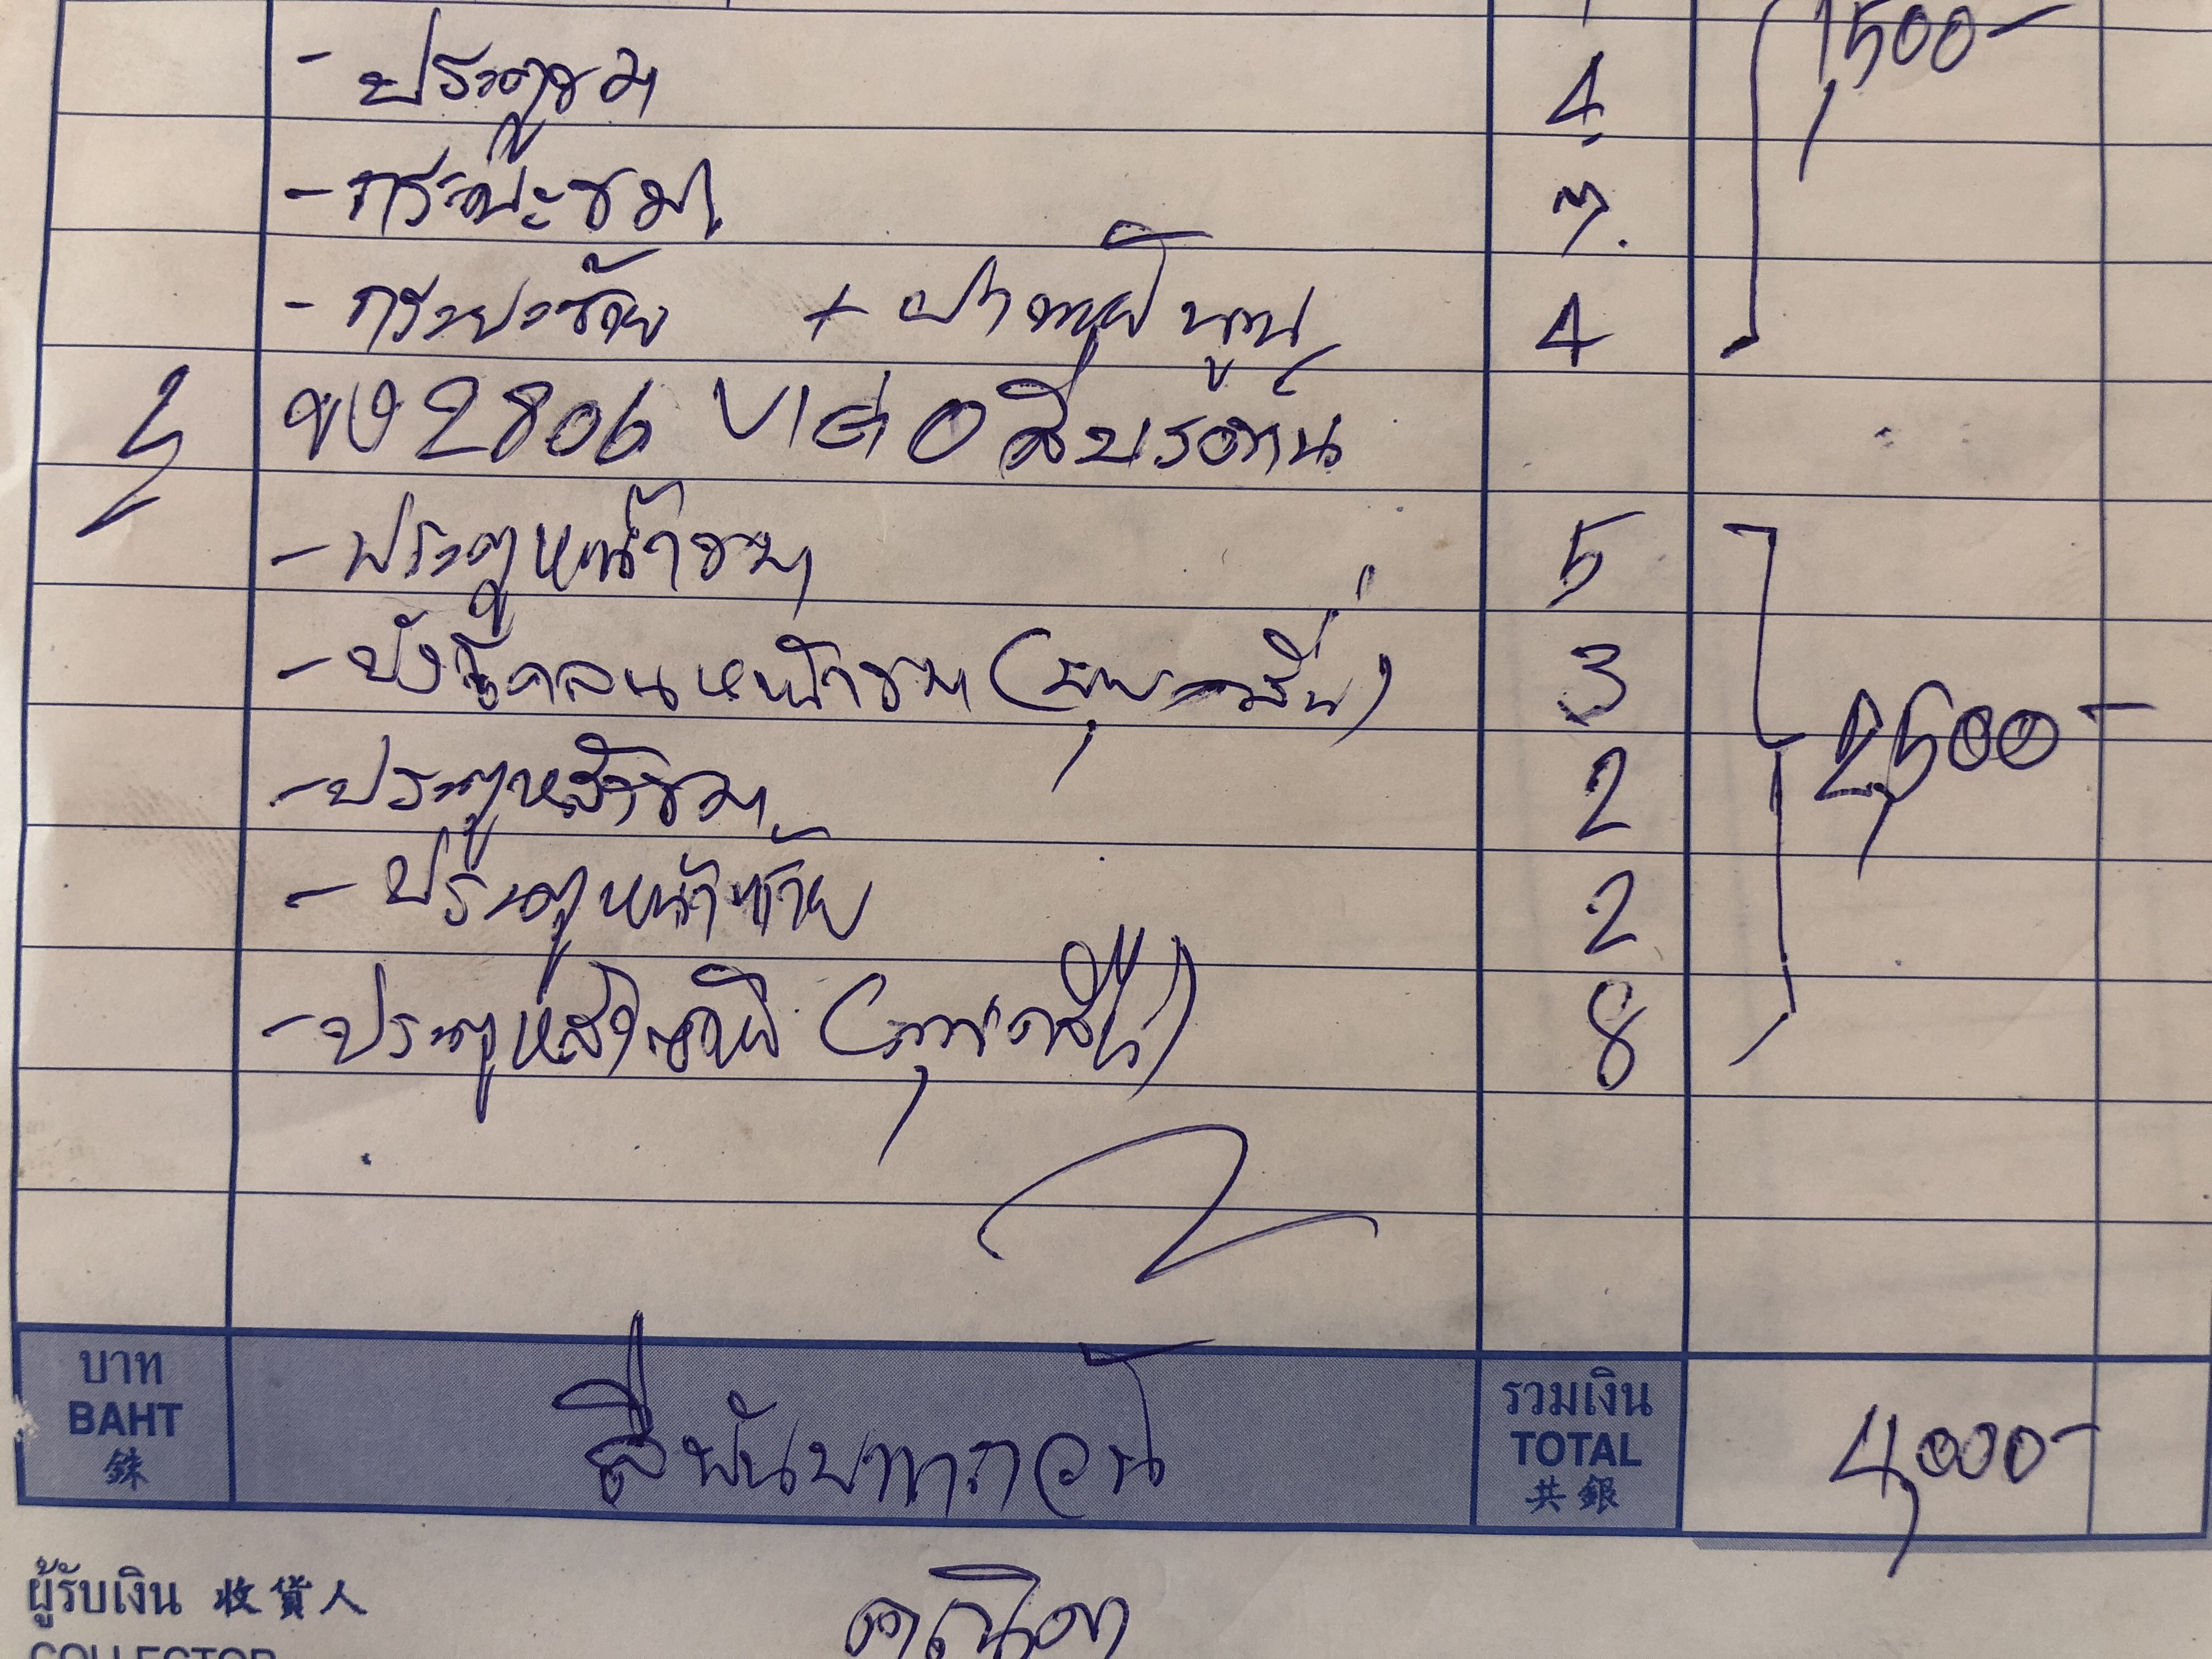 1,500-
- ประตูขวา 4
- กระบะขวา 3
- กระบะซ้าย + ฝาท้ายปูนูน 4
2, ขง 2806 VIGO สีบรอนซ์
- ประตูหน้าขวา 5
- บังโคลนหน้าขวา ( ) 3
- ประตูหลังขวา 2 2,500-
- ประตูหน้าซ้าย 2
- ประตูหลังซ้าย ( ) 8
บาท สี่พันบาทถ้วน รวมเงิน 4,000-
BAHT TOTAL
銖 共銀
ผู้รับเงิน 收貨人
COLLECTOR